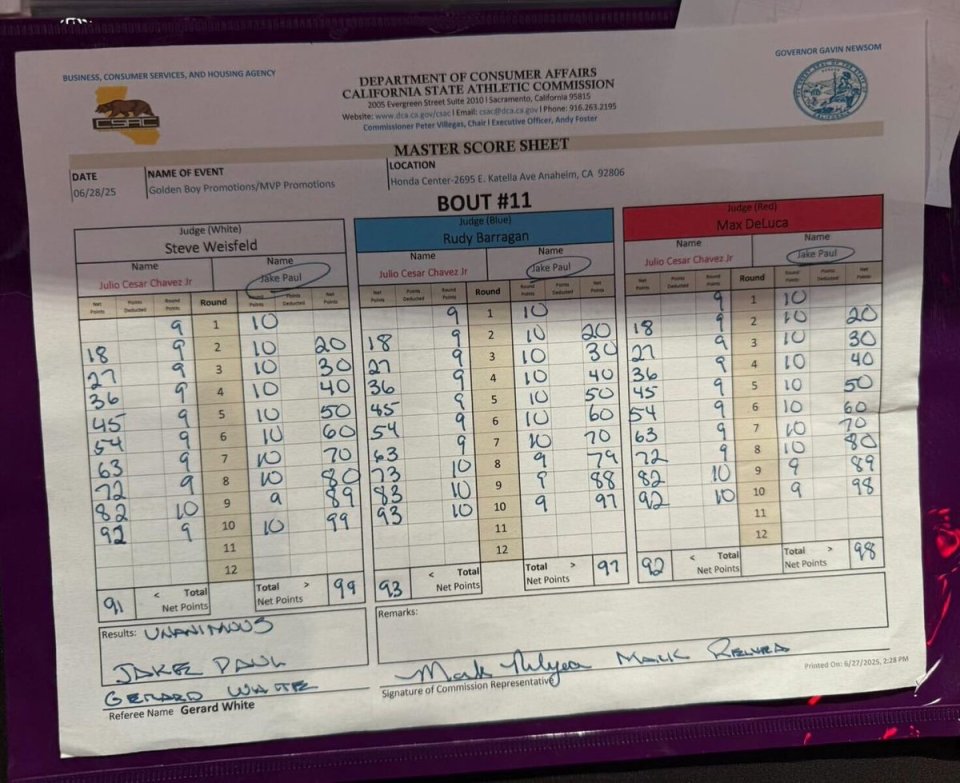 BUSINESS, CONSUMER SERVICES, AND HOUSING AGENCY
GOVERNOR GAVIN NEWSOM
CSAC
DEPARTMENT OF CONSUMER AFFAIRS
CALIFORNIA STATE ATHLETIC COMMISSION
2005 Evergreen Street Suite 2010 | Sacramento, California 95815
Website: www.dca.ca.gov/csac | Email: csac@dca.ca.gov | Phone: 916.263.2195
Commissioner Peter Villegas, Chair | Executive Officer, Andy Foster
MASTER SCORE SHEET
DATE
06/28/25
NAME OF EVENT
Golden Boy Promotions/MVP Promotions
LOCATION
Honda Center-2695 E. Katella Ave Anaheim, CA 92806
BOUT #11
Judge (White)
Steve Weisfeld
Name Name
Julio Cesar Chavez Jr Jake Paul
Net Points Points Deducted Round Points Round Round Points Points Deducted Net Points
9 1 10
18 9 2 10 20
27 9 3 10 30
36 9 4 10 40
45 9 5 10 50
54 9 6 10 60
63 9 7 10 70
72 9 8 10 80
82 10 9 9 89
92 9 10 10 99
11
12
91 < Total Net Points Total > Net Points 99
Judge (Blue)
Rudy Barragan
Name Name
Julio Cesar Chavez Jr Jake Paul
Net Points Points Deducted Round Points Round Round Points Points Deducted Net Points
9 1 10
18 9 2 10 20
27 9 3 10 30
36 9 4 10 40
45 9 5 10 50
54 9 6 10 60
63 9 7 10 70
73 10 8 9 79
83 10 9 9 88
93 10 10 9 97
11
12
93 < Total Net Points Total > Net Points 97
Judge (Red)
Max DeLuca
Name Name
Julio Cesar Chavez Jr Jake Paul
Net Points Points Deducted Round Points Round Round Points Points Deducted Net Points
9 1 10
18 9 2 10 20
27 9 3 10 30
36 9 4 10 40
45 9 5 10 50
54 9 6 10 60
63 9 7 10 70
72 9 8 10 80
82 10 9 9 89
92 10 10 9 98
11
12
92 < Total Net Points Total > Net Points 98
Results: UNANIMOUS
JAKE PAUL
GERARD WHITE
Referee Name Gerard White
Remarks:
Mark Relyea MARK RELYEA
Signature of Commission Representative
Printed On: 6/27/2025, 2:28 PM